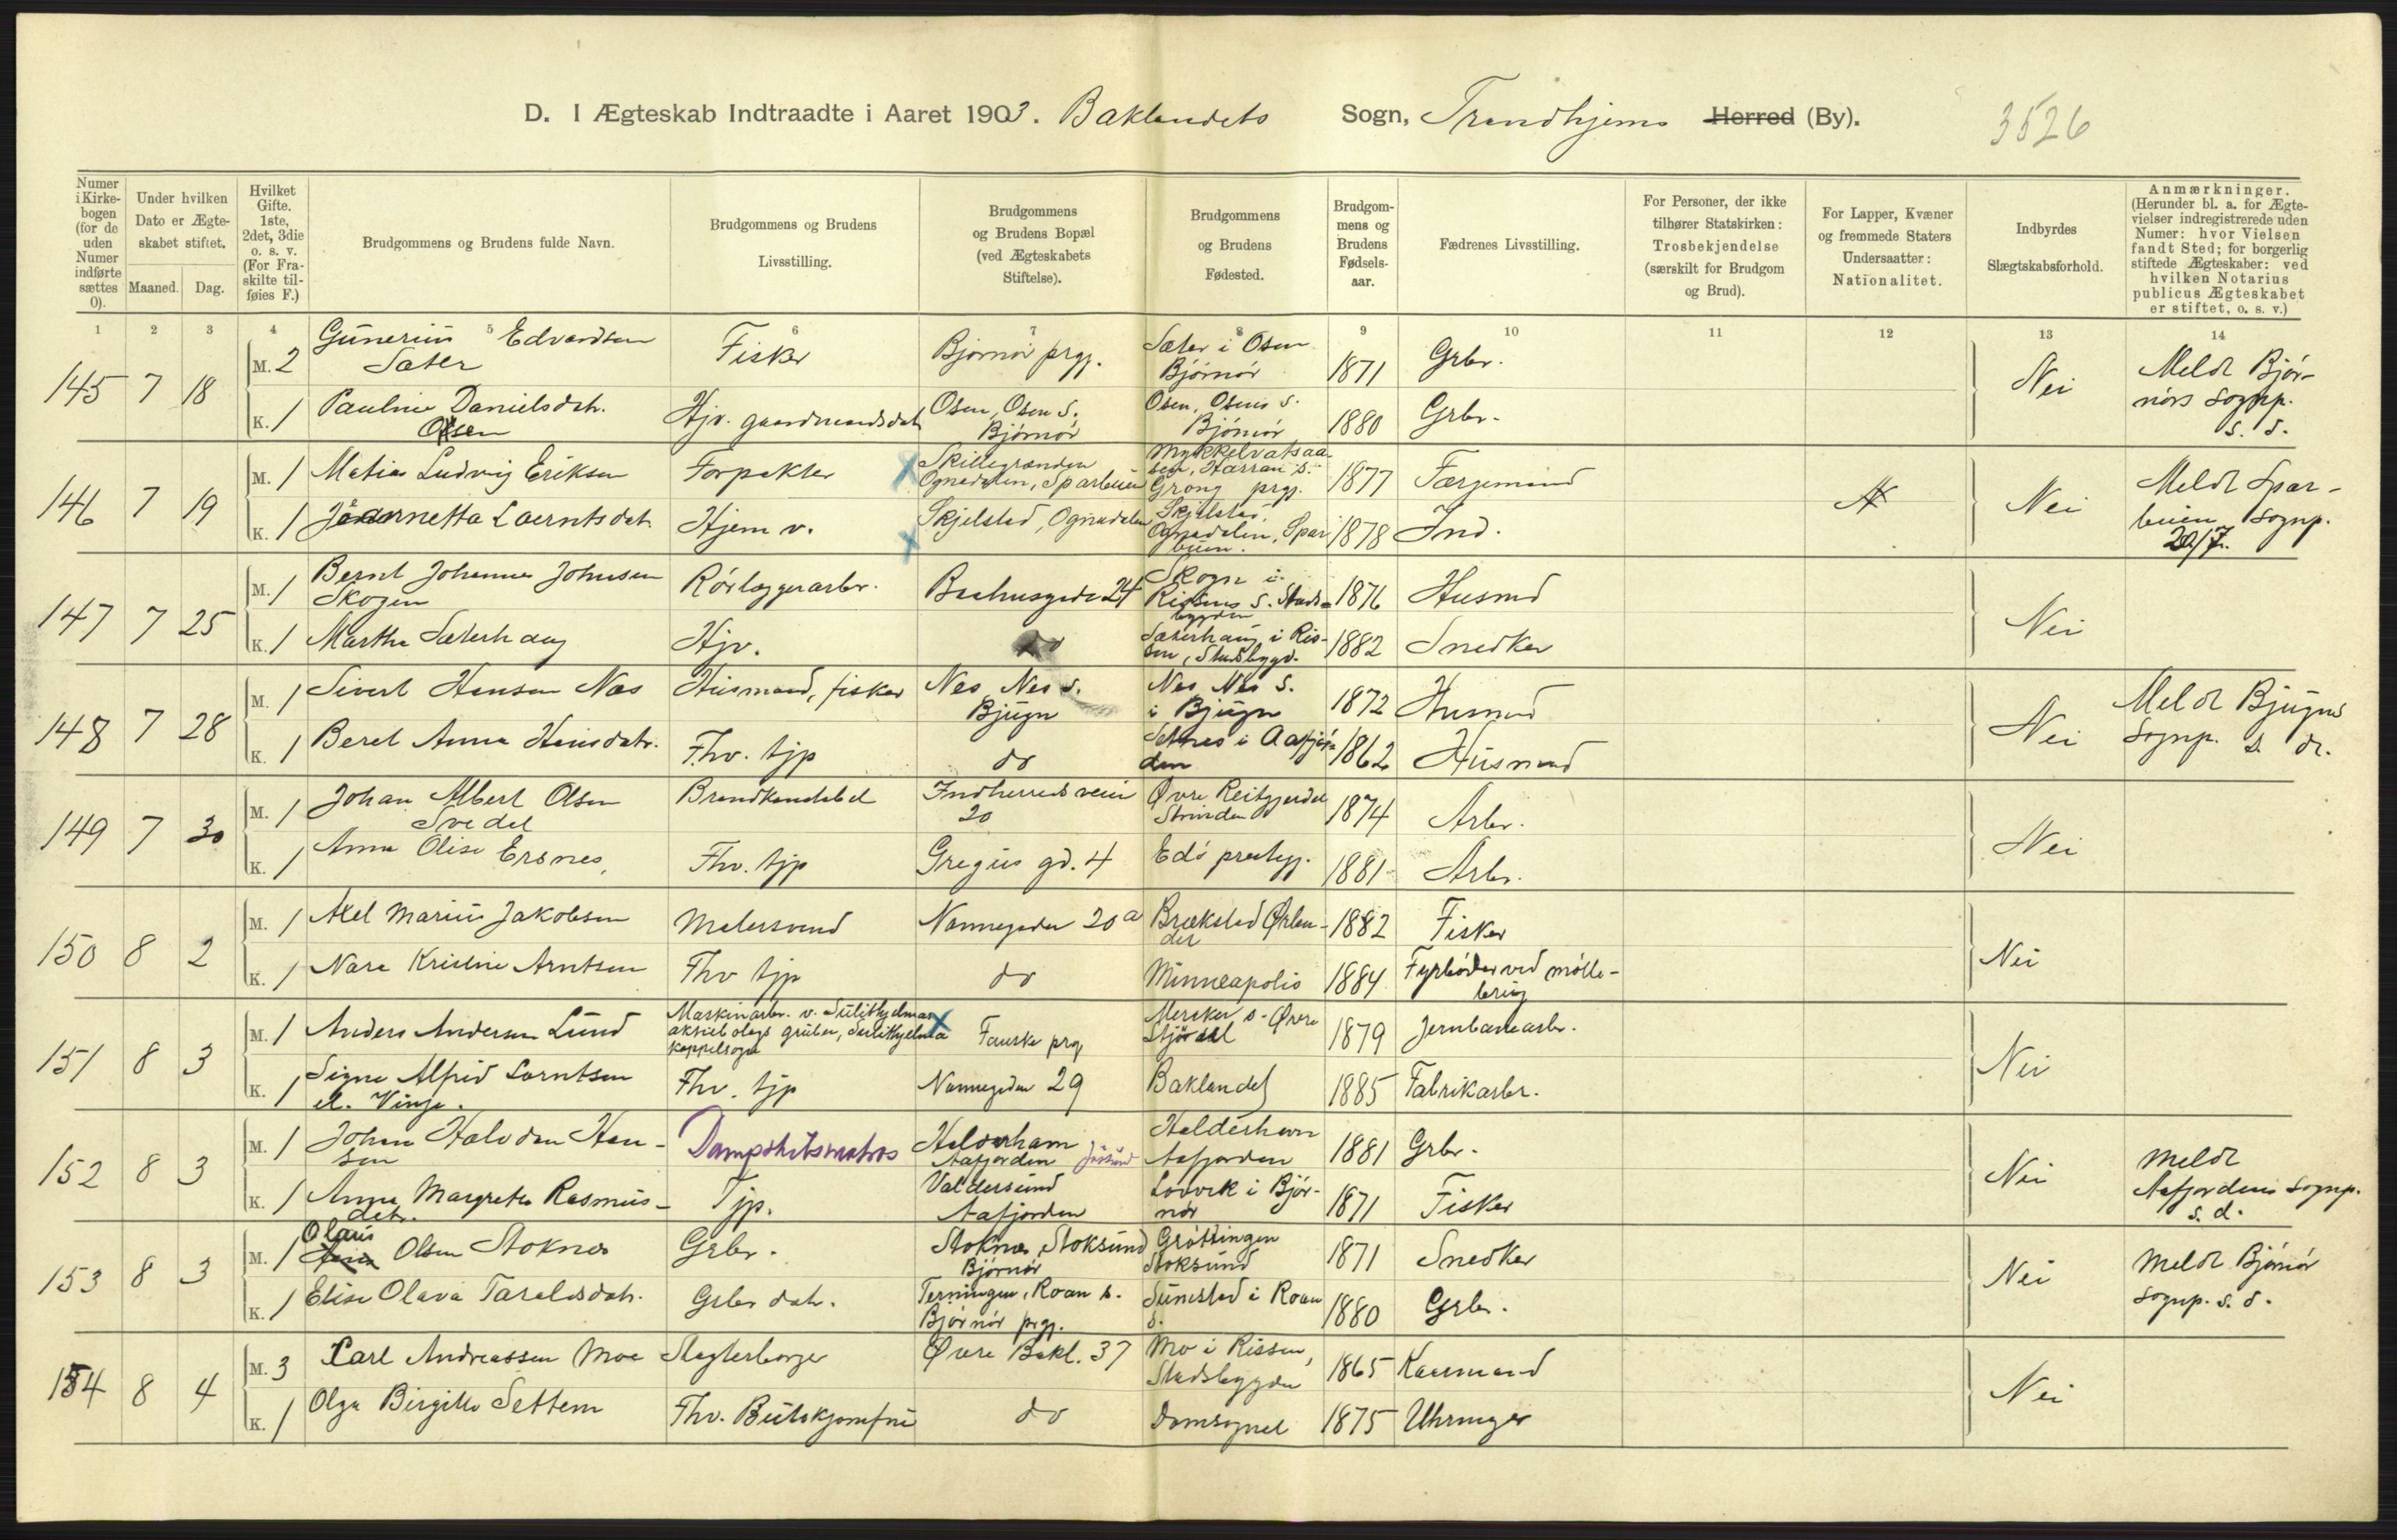 D. I Ægteskab Indtraadte i Aaret 1903. Baklandets Sogn, Trondhjems Herred (By). 3526
Numer i Kirkebogen (for de uden Numer indførte sættes 0).
Under hvilken Dato er Ægteskabet stiftet.
Maaned. Dag.
Hvilket Gifte. 1ste, 2det, 3die o. s. v. (For Fraskilte tilføies F.)
Brudgommens og Brudens fulde Navn.
Brudgommens og Brudens Livsstilling.
Brudgommens og Brudens Bopæl (ved Ægteskabets Stiftelse).
Brudgommens og Brudens Fødested.
Brudgommens og Brudens Fødselsaar.
Fædrenes Livsstilling.
For Personer, der ikke tilhører Statskirken: Trosbekjendelse (særskilt for Brudgom og Brud).
For Lapper, Kvæner og fremmede Staters Undersaatter: Nationalitet.
Indbyrdes Slægtskabsforhold.
Anmærkninger. (Herunder bl. a. for Ægtevielser indregistrerede uden Numer: hvor Vielsen fandt Sted; for borgerlig stiftede Ægteskaber: ved hvilken Notarius publicus Ægteskabet er stiftet, o. s. v.)
1 2 3 4 5 6 7 8 9 10 11 12 13 14
145 7 18 M. 2 Gunerius Edvardsen Sæter Fisker Bjørnør prgj. Sæter i Osen Bjørnør 1871 Grbr. Nei Meldt Bjørnørs Sognp. s. d.
K. 1 Pauline Danielsdtr. Osen Hjv. gaardmandsdat Osen, Osen S. Bjørnør Osen, Osens S. Bjørnør 1880 Grbr.
146 7 19 M. 1 Matias Ludvig Eriksen Forpakter Skillegranden Ognedalen, Sparbuen Mykkelvatsaasen, Harran s. Grong prgj. 1877 Færgemand Nei Meldt Sparbuen Sognp. 20/7.
K. 1 Laerntsdat. Hjem v. Skjelstad, Ognadalen Skjelstad, Ognadalen, Sparbuen. 1878 Ind.
147 7 25 M. 1 Bernt Johannes Johnsen Skogen Rørlæggerarbr. Baahusgade 24 Skogn i Rissens S. Stadsbygden 1876 Husmd Nei
K. 1 Martha Sæterhaug Hjv. do Sæterhaug i Rissen, Stadsbygd. 1882 Snedker
148 7 28 M. 1 Sivert Hansen Næs Husmand, fisker Nes, Nes S. Bjugn Nes, Nes S. i Bjugn 1872 Husmd Nei Meldt Bjugns Sognp. s. d.
K. 1 Beret Anna Hansdatr. Fhv. tjp do Sætnes i Aafjorden 1862 Husmand
149 7 30 M. 1 Johan Albert Olsen Svedel Brandkonstabel Indherredsveien 20 Øvre Reitgjerdet Strinden 1874 Arbr. Nei
K. 1 Anna Olise Ersnes, Fhv. tjp Gregus gd. 4 Edø prestegj. 1881 Arbr.
150 8 2 M. 1 Axel Marius Jakobsen Malersvend Nonnegaden 20a Brækstad Ørlandet 1882 Fisker Nei
K. 1 Nara Kristine Arntsen Fhv tjp do Minneapolis 1884 Fyrbøder ved møllebrug
151 8 3 M. 1 Anders Andersen Lund Maskinarbr. v. Sulithjelmas aktiebolags gruber, Sulithjelma kappelsogn Fauske prg Meraker s. Øvre Stjørdal 1879 Jernbanearbr. Nei
K. 1 Signe Alfrid Lorntsen el. Vinje. Fhv. tjp Nonnegaden 29 Baklandet 1885 Fabrikarbr.
152 8 3 M. 1 Johan Halvdan Hansen Dampskibsmatros Halderhavn Aafjorden Halderhavn Aafjorden 1881 Grbr. Nei Meldt Aafjordens Sognp. s. d.
K. 1 Anna Margrete Rasmusdatr. Tjp. Valdersund Aafjorden Lovvik i Bjørnør 1871 Fisker
153 8 3 M. 1 Olaus Olsen Stoknes Grbr. Stoknes, Stoksund Bjørnør Grøttingen Stoksund 1871 Snedker Nei Meldt Bjørnør Sognp. s. d.
K. 1 Elise Olava Taraldsdatr. Grbr datr. Terningen, Roan s. Bjørnør prgj. Sumstad i Roan s. 1880 Grbr.
154 8 4 M. 3 Carl Andreassen Moe Slagterborger Øvre Bakl. 37 Mo i Rissen, Stadsbygden 1865 Kaarmand Nei
K. 1 Olga Birgitte Settem Fhv. Butikjomfru do Domsognet 1875 Uhrmager